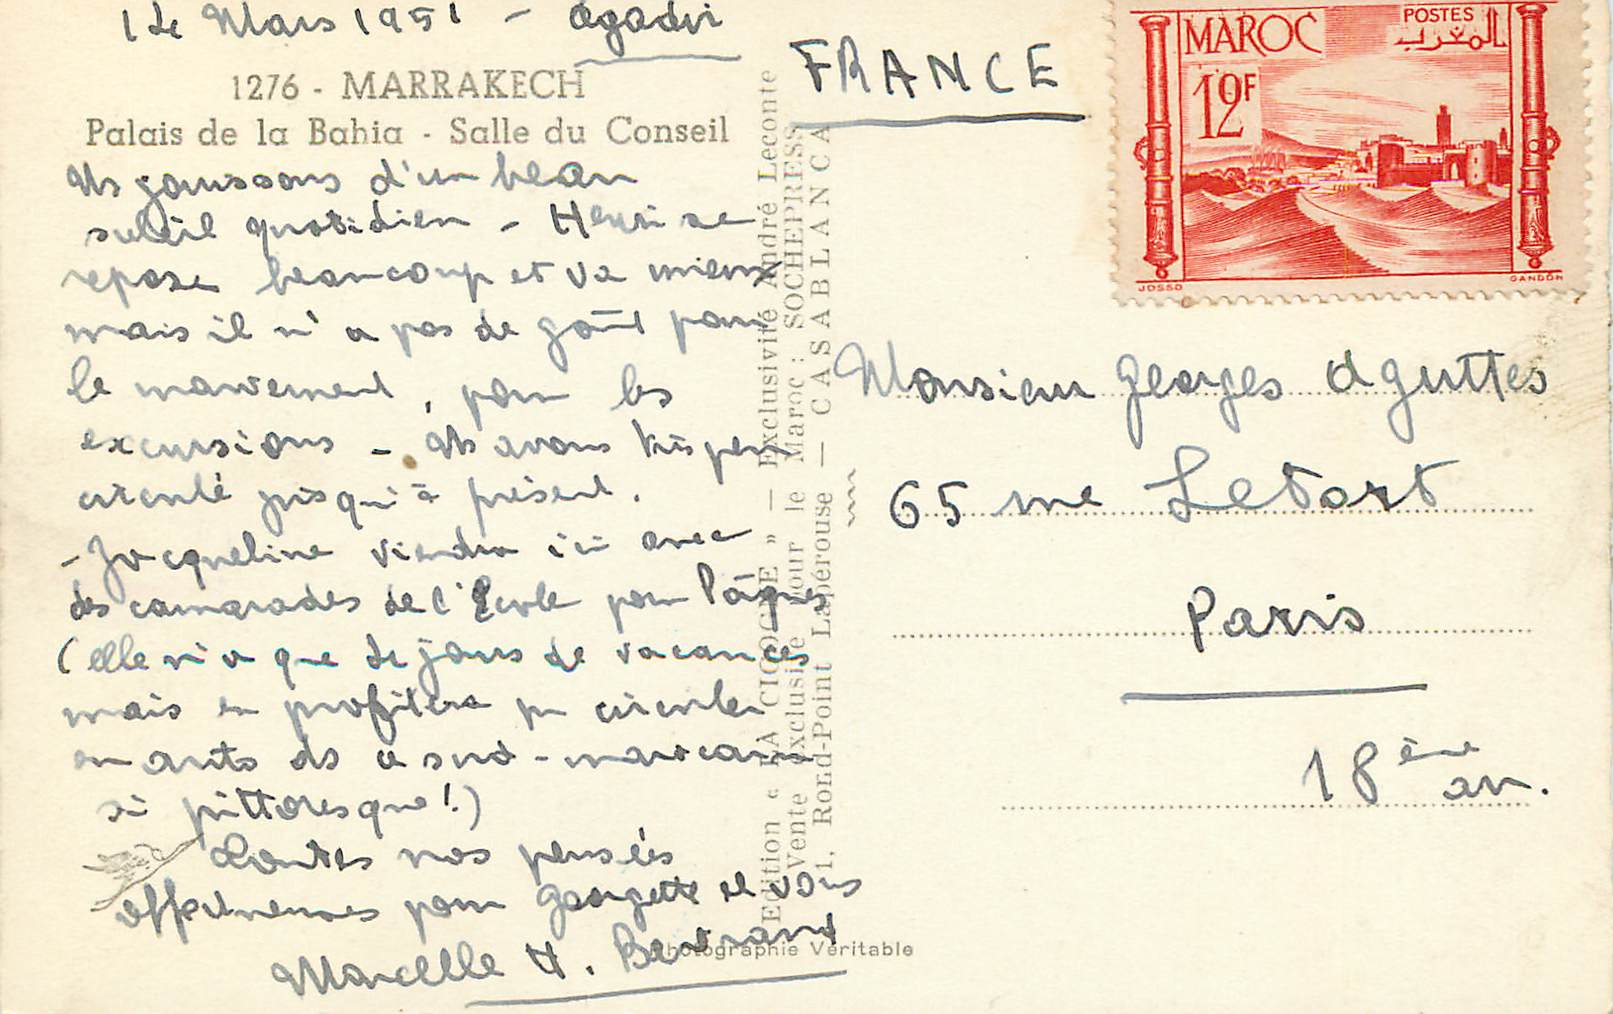 Mars 1951 - Agadir
1276 - MARRAKECH
Palais de la Bahia - Salle du Conseil
Ns jouissons d'un beau
soleil quotidien - Henri se
repose beaucoup et va mieux
mais il n'a pas de goût pour
le mouvement, pour les
excursions - Ns avons très peu
circulé jusqu'à présent.
- Jacqueline viendra ici avec
des camarades de l'Ecole pour Pâques
(elle n'a que de jours de vacances
mais en profitera pr circuler
en auto ds ce sud-marocain
si pittoresque !)
Toutes nos pensées
affectueuses pour Georgette et vous
Marcelle H. Bertrand
Edition « LA CIGOGNE » — Exclusivité André Leconte
Vente exclusive pour le Maroc : SOCHEPRESS
1, Rond-Point Lapérouse — CASABLANCA
Photographie Véritable
FRANCE
MAROC
POSTES
المغرب
12F
JOSSO
GANDON
Monsieur Georges Aguttes
65 rue Letort
Paris
18ème arr.